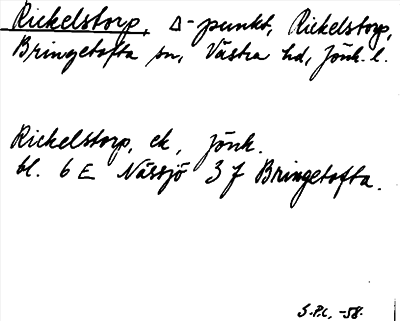 Rickelstorp, Δ-punkt, Rickelstorp,
Bringetofta sn, Västra hd, Jönk. l.
Rickelstorp, ek, Jönk.
bl. 6 E Nässjö 3 f Bringetofta.
S.P.L, -58.